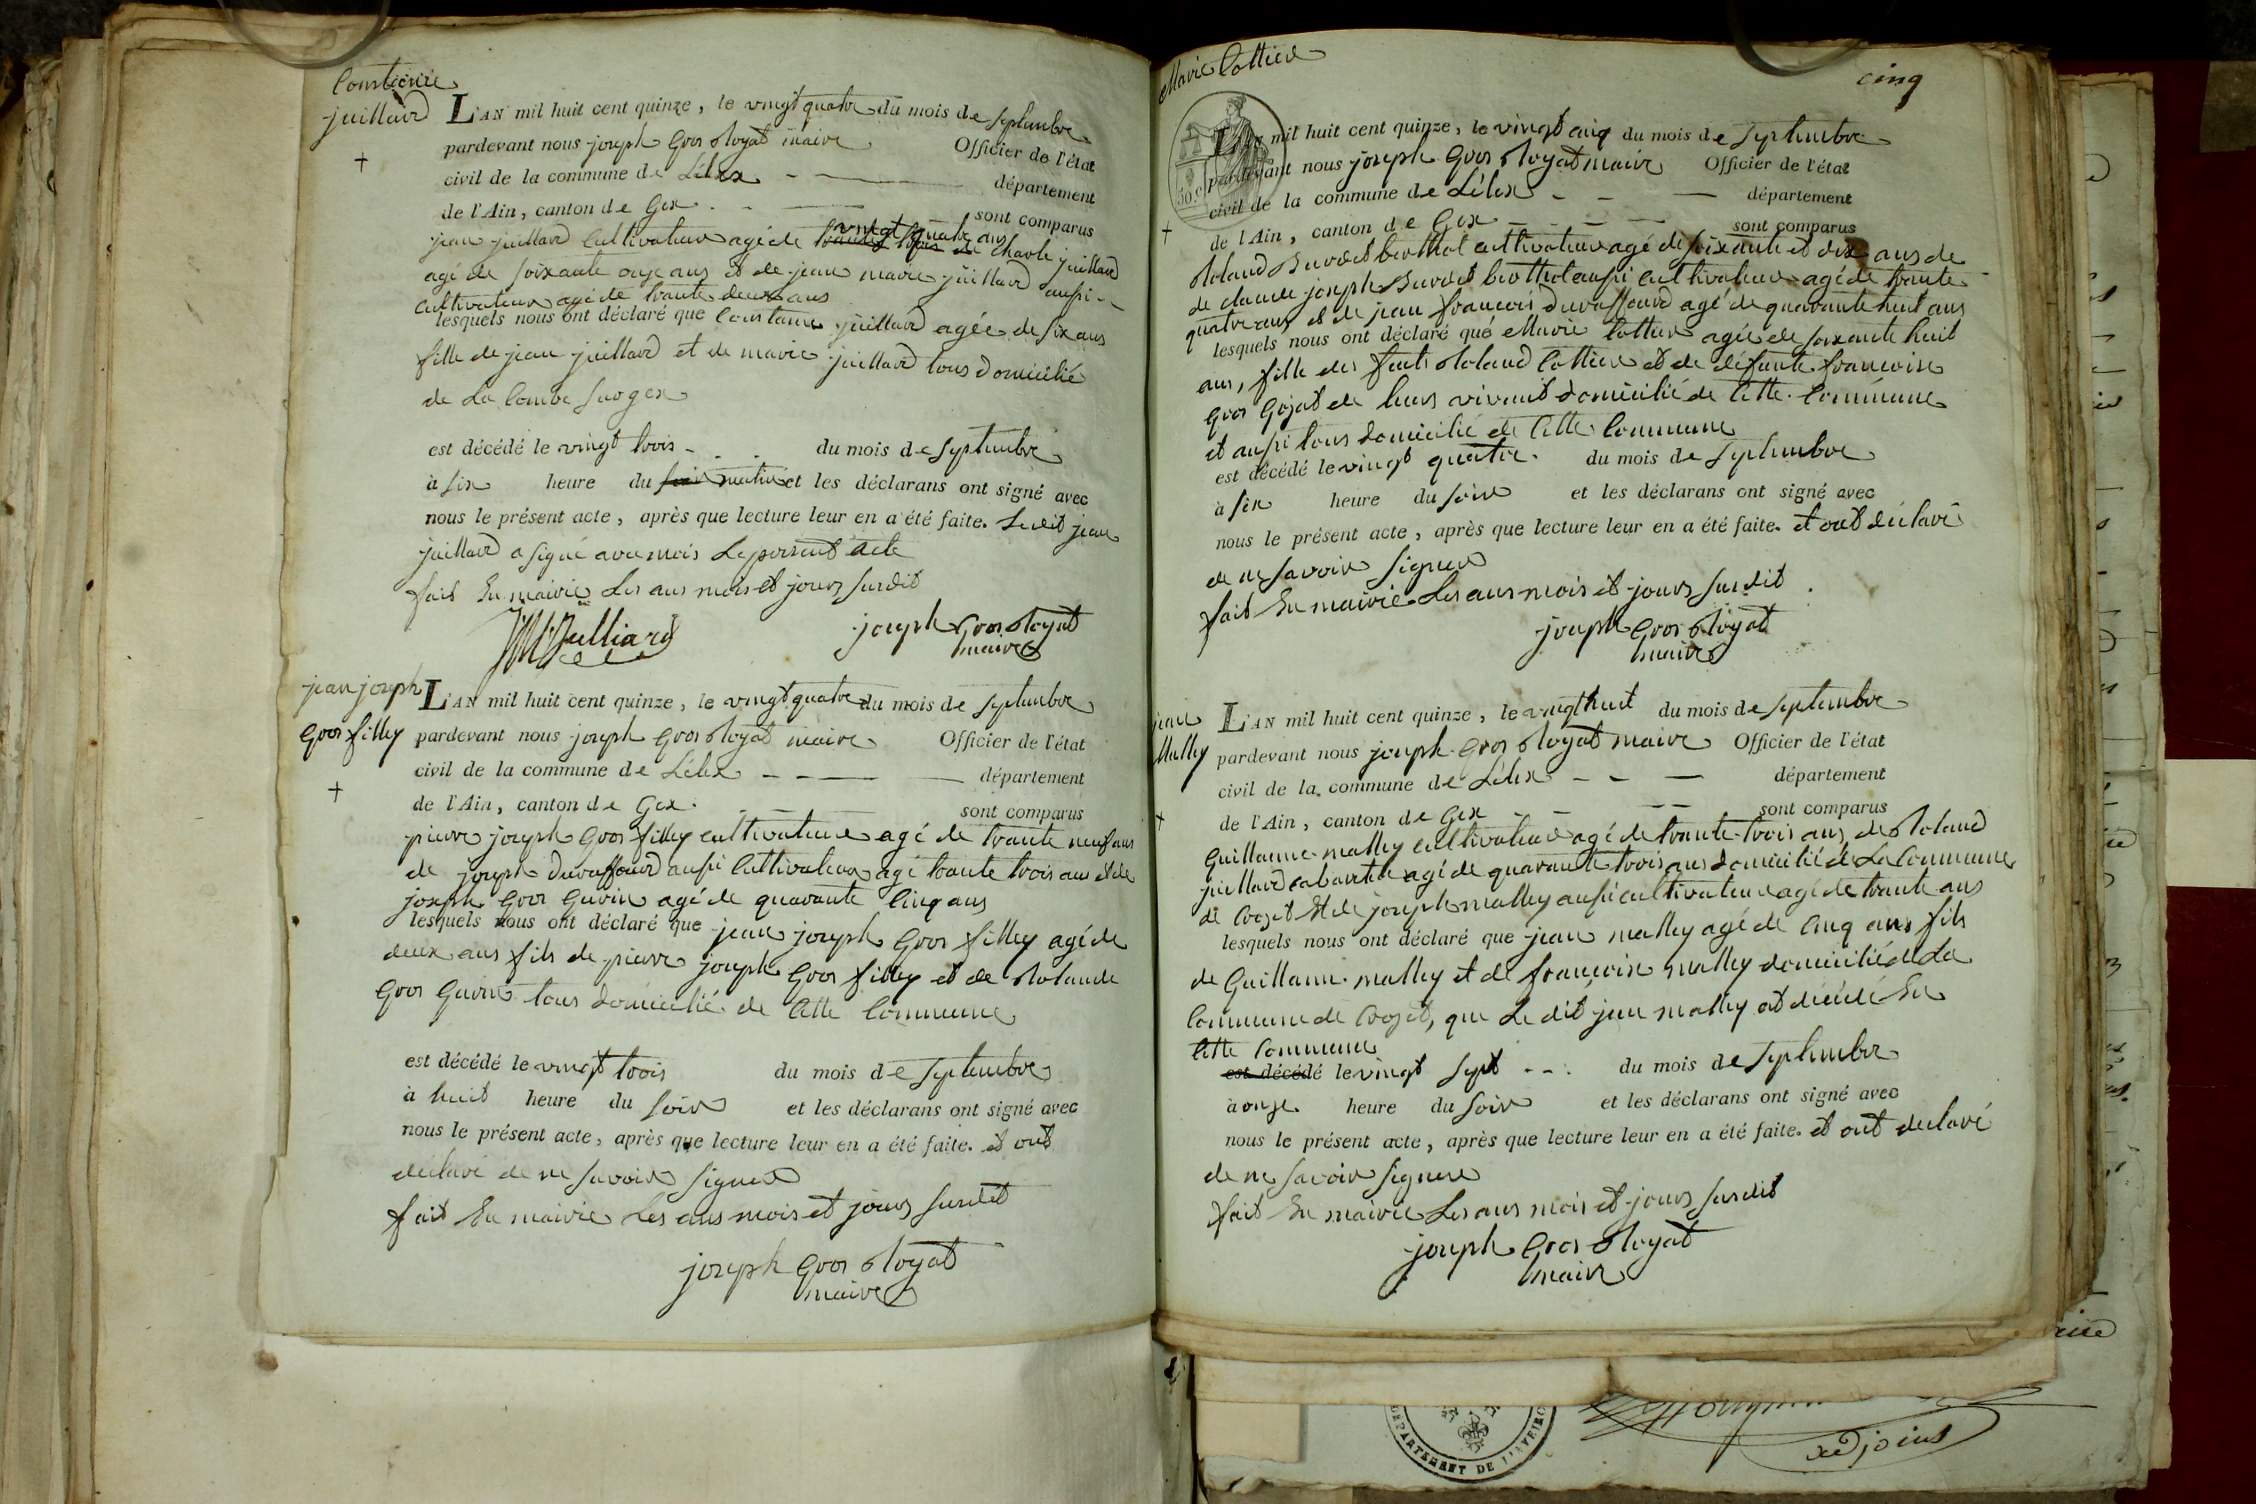 Constance
juillard
L'AN mil huit cent quinze, le vingt quatre du mois de septembre
pardevant nous joseph Gros Royat maire Officier de l'état
civil de la commune de Lélex département
de l'Ain, canton de Gex sont comparus
jean juillard Cultivateur agé de vingt quatre ans de Charle juillard
agé de soixante onze ans et de jean marie juillard aussi
Cultivateur agé de trante deux ans
lesquels nous ont déclaré que Constance juillard agée de six ans
fille de jean juillard et de marie juillard tous domicilié
de La Combe
est décédé le vingt trois du mois de septembre
à six heure du soir matin et les déclarans ont signé avec
nous le présent acte, après que lecture leur en a été faite. Le dit jean
juillard a signé avec mois Le present acte
fait En mairie Les ans mois et jours susdit
JM Julliard
joseph Gros Royat
maire
jean joseph
Gros filley
L'AN mil huit cent quinze, le vingt quatre du mois de septembre
pardevant nous joseph Gros Royat maire Officier de l'état
civil de la commune de Lélex département
de l'Ain, canton de Gex. sont comparus
pierre joseph Gros filley cultivateur agé de trante neuf ans
de joseph Duraffourd aussi Cultivateur agé trante trois ans et de
joseph Gros Gurin agé de quarante Cinq ans
lesquels nous ont déclaré que jean joseph Gros filley agé de
deux ans fils de pierre joseph Gros filley et de Rolande
Gros Gurin tous domicilié de Cette Commune
est décédé le vingt trois du mois de septembre
à huit heure du soir et les déclarans ont signé avec
nous le présent acte, après que lecture leur en a été faite. et ont
déclaré de ne savoir signer
fait En mairie Les ans mois et jours susdit
joseph Gros Royat
maire
Marie Cottier
cinq
L'AN mil huit cent quinze, le vingt cinq du mois de septembre
pardevant nous joseph Gros Royat maire Officier de l'état
civil de la commune de Lélex département
de l'Ain, canton de Gex sont comparus
Roland Burdet berthot cultivateur agé de soixante et dix ans de
de claude joseph Burdet berthot aussi cultivateur agé de trante
quatre ans et de jean francois Duraffourd agé de quarante huit ans
lesquels nous ont déclaré que Marie Cottier agée de soixante huit
ans, fille des feuts Roland Cottier et de défunte francoise
Gros Gojat de leurs vivant domicilié de Cette Commune
et aussi tous domicilié de Cette Commune
est décédé le vingt quatre. du mois de septembre
à six heure du soir et les déclarans ont signé avec
nous le présent acte, après que lecture leur en a été faite. et ont déclaré
de ne savoir signer
fait En mairie Les ans mois et jours susdit
joseph Gros Royat
maire
jean
Malley
L'AN mil huit cent quinze, le vingt huit du mois de septembre
pardevant nous joseph Gros Royat maire Officier de l'état
civil de la commune de Lélex département
de l'Ain, canton de Gex sont comparus
Guillaume malley cultivateur agé de trante trois ans, de Roland
juillard cabartier agé de quarante trois ans domicilié de La Commune
de Crozet et de joseph malley aussi cultivateur agé de trante ans
lesquels nous ont déclaré que jean malley agé de Cinq ans fils
de Guillaume malley et de francoise malley domicilié de La
Commune de Crozet, que Le dit jean malley est décédé En
Cette Commune
est décédé le vingt sept du mois de septembre
à onze heure du soir et les déclarans ont signé avec
nous le présent acte, après que lecture leur en a été faite. et ont declaré
de ne savoir signer
fait En mairie Les ans mois et jours susdit
joseph Gros Royat
maire
DEPARTEMENT DE
adjoint